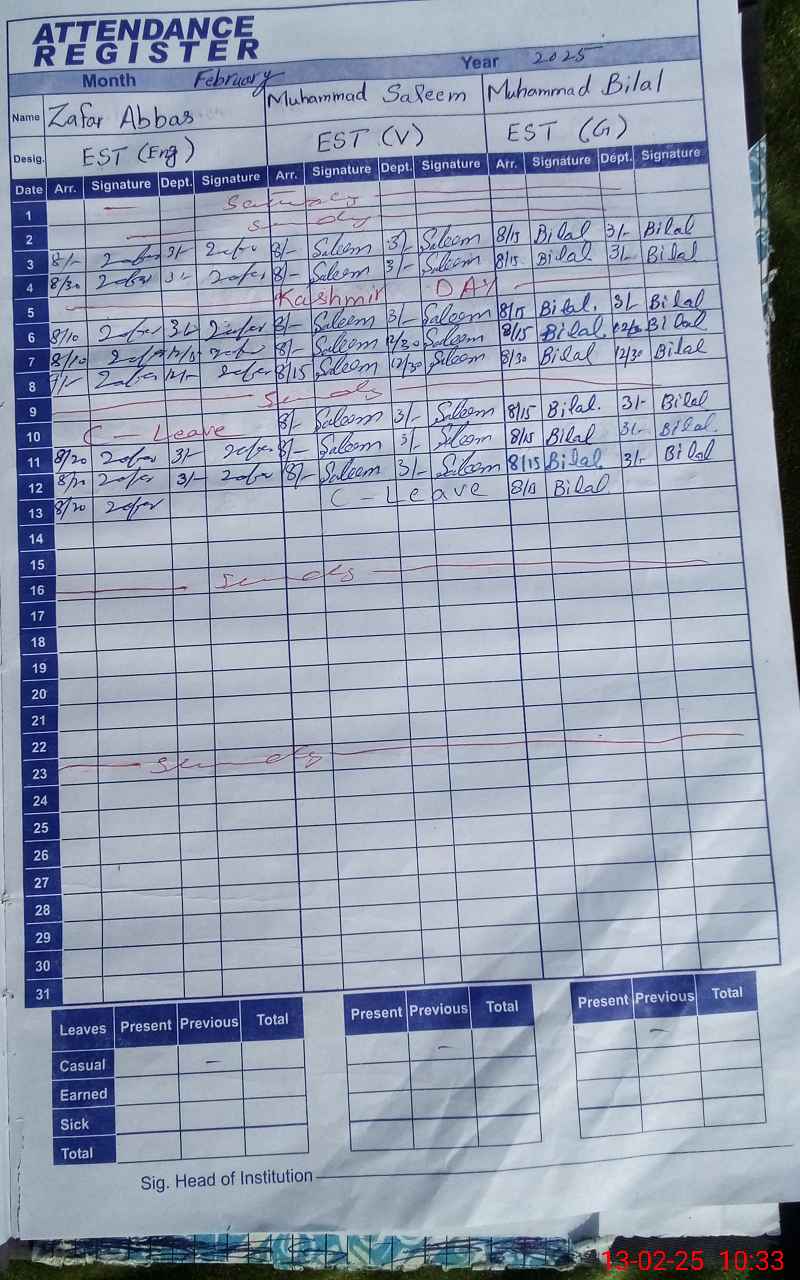 ATTENDANCE
REGISTER
Month February Year 2025
Name Zafar Abbas Muhammad Saleem Muhammad Bilal
Desig. EST (Eng) EST (V) EST (G)
Date Arr. Signature Dept. Signature Arr. Signature Dept. Signature Arr. Signature Dept. Signature
1 Saturday
2 Sunday
3 8/- Zafar 3/- Zafar 8/- Saleem 3/- Saleem 8/15 Bilal 3/- Bilal
4 8/30 Zafar 3/- Zafar 8/- Saleem 3/- Saleem 8/15 Bilal 3/- Bilal
5 Kashmir DAY
6 8/10 Zafar 3/- Zafar 8/- Saleem 3/- Saleem 8/15 Bilal. 3/- Bilal
7 8/10 Zafar Zafar 8/- Saleem 12/30 Saleem 8/15 Bilal. 12/30 Bilal
8 Zafar Zafar 8/15 Saleem 12/30 Saleem 8/30 Bilal 12/30 Bilal
9 Sunday
10 C - Leave 8/- Saleem 3/- Saleem 8/15 Bilal. 3/- Bilal
11 8/20 Zafar 3/- Zafar 8/- Saleem 3/- Saleem 8/15 Bilal 3/- Bilal.
12 8/20 Zafar 3/- Zafar 8/- Saleem 3/- Saleem 8/15 Bilal 3/- Bilal
13 8/20 Zafar C - Leave 8/15 Bilal
14
15
16 Sunday
17
18
19
20
21
22
23 Sunday
24
25
26
27
28
29
30
31
Leaves Present Previous Total Present Previous Total Present Previous Total
Casual - - -
Earned
Sick
Total
Sig. Head of Institution
13-02-25 10:33